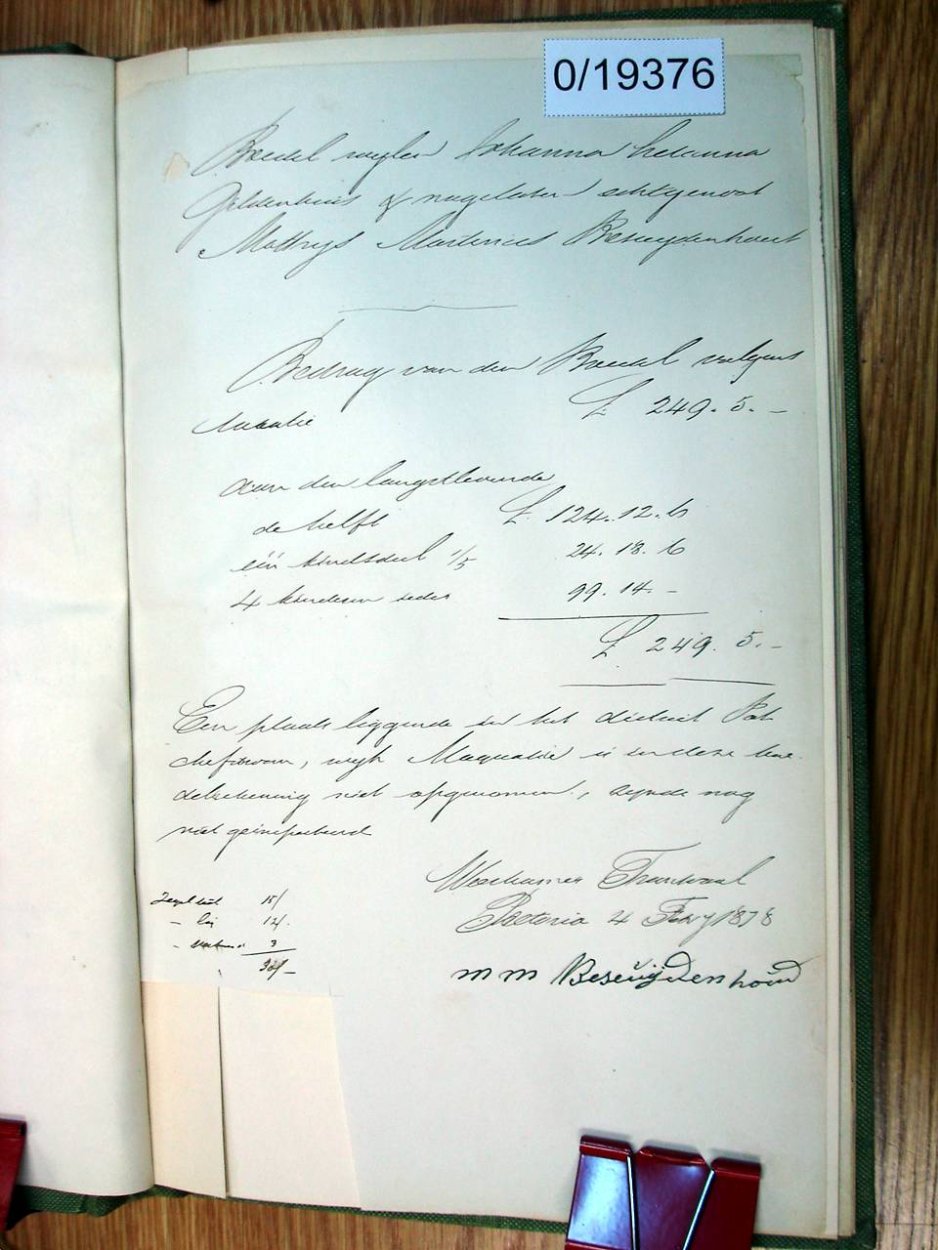 0/19376
Boedel wijlen Johanna Susanna
Gildenhuis & nagelaten echtgenoot
Matthys Martinus Besuydenhout
Bedrag van den Boedel volgens
taxatie £ 249. 5. -
aan den langstlevende
de helft £ 124. 12. 6
één kindsdeel 1/5 24. 18. 6
4 kinderen ieder 99. 14. -
£ 249. 5. -
Een plaats liggende in het district Pot
chefstroom, wyk is in deze boe-
delrekening niet opgenomen, zynde nog
niet geinspecteerd
Weeskamer Transvaal
Pretoria 4 Feby 1878
Zegel 15/
- 12/.
- 3
30/-
m m Beseuijdenhoud